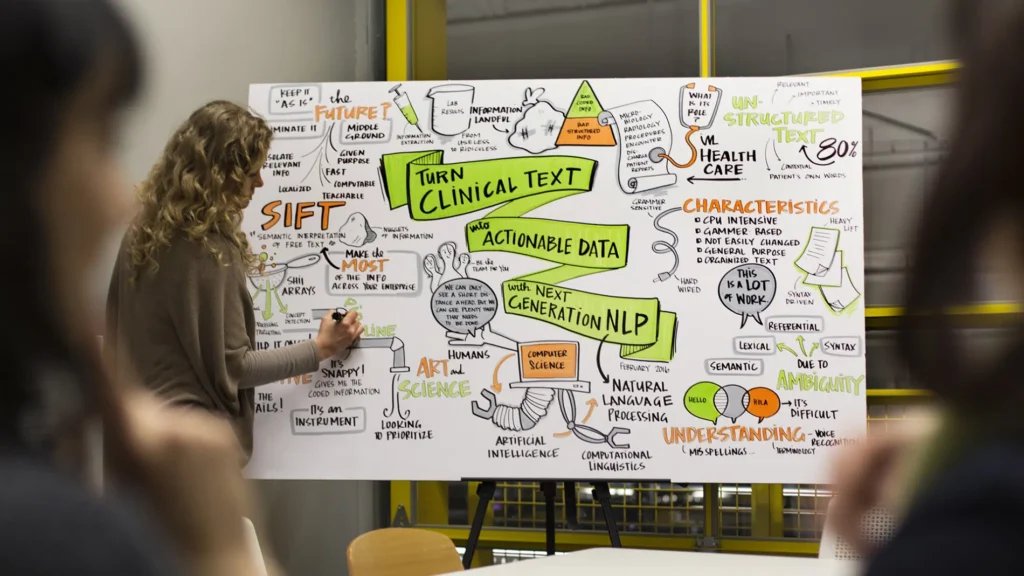 KEEP IT
"AS IS"
the
FUTURE?
MINATE IT
MIDDLE
GROUND
ISOLATE
RELEVANT
INFO
LOCALIZED
GIVEN
PURPOSE
FAST
COMPUTABLE
TEACHABLE
SIFT
"SEMANTIC INTERPRETATION
OF FREE TEXT"
NUGGETS
OF INFORMATION
MAKE the
MOST
OF THE INFO
ACROSS YOUR ENTERPRISE
ARRAYS
CONCEPT
DETECTION
LINE
IT'S
SNAPPY!
GIVES ME THE
CODED INFORMATION
THE
AILS!
IT'S AN
INSTRUMENT
LOOKING
TO PRIORITIZE
INFORMATION
EXTRACTION
LAB
RESULTS
INFORMATION
LANDFILL
FROM
USELESS
TO RIDICULESS
BAD
CODED
INFO
BAD
STRUCTURED INFO
MICRO-
BIOLOGY
RADIOLOGY
PROCEDURES
ENCOUNTER
DIS
CHARGE
PATIENT
REPORTS
TURN
CLINICAL TEXT
into
ACTIONABLE DATA
with NEXT
GENERATION NLP
FEBRUARY 2016
BE the
TEAM FOR YOU
WE CAN ONLY
SEE A SHORT DIS-
TANCE AHEAD, BUT WE
CAN SEE PLENTY
THAT NEEDS
TO BE DONE
HUMANS
ART and
SCIENCE
COMPUTER
SCIENCE
ARTIFICIAL
INTELLIGENCE
NATURAL
LANGUAGE
PROCESSING
COMPUTATIONAL
LINGUISTICS
WHAT
IS ITS
ROLE
?
HEALTH
CARE
UN-
STRUCTURED
TEXT
RELEVANT
IMPORTANT
TIMELY
80%
PATIENT'S OWN WORDS
GRAMMER
SENSITIVE
HARD
WIRED
CHARACTERISTICS
CPU INTENSIVE
GAMMER BASED
NOT EASILY CHANGED
GENERAL PURPOSE
ORGANIZED TEXT
HEAVY
LIFT
SYNTAX
DRIVEN
THIS
IS A LOT
OF WORK.
REFERENTIAL
LEXICAL
SYNTAX
SEMANTIC
DUE TO
AMBIGUITY
HELLO
HOLA
IT'S
DIFFICULT
UNDERSTANDING
MISSPELLINGS...
VOICE
TERMINOLOGY